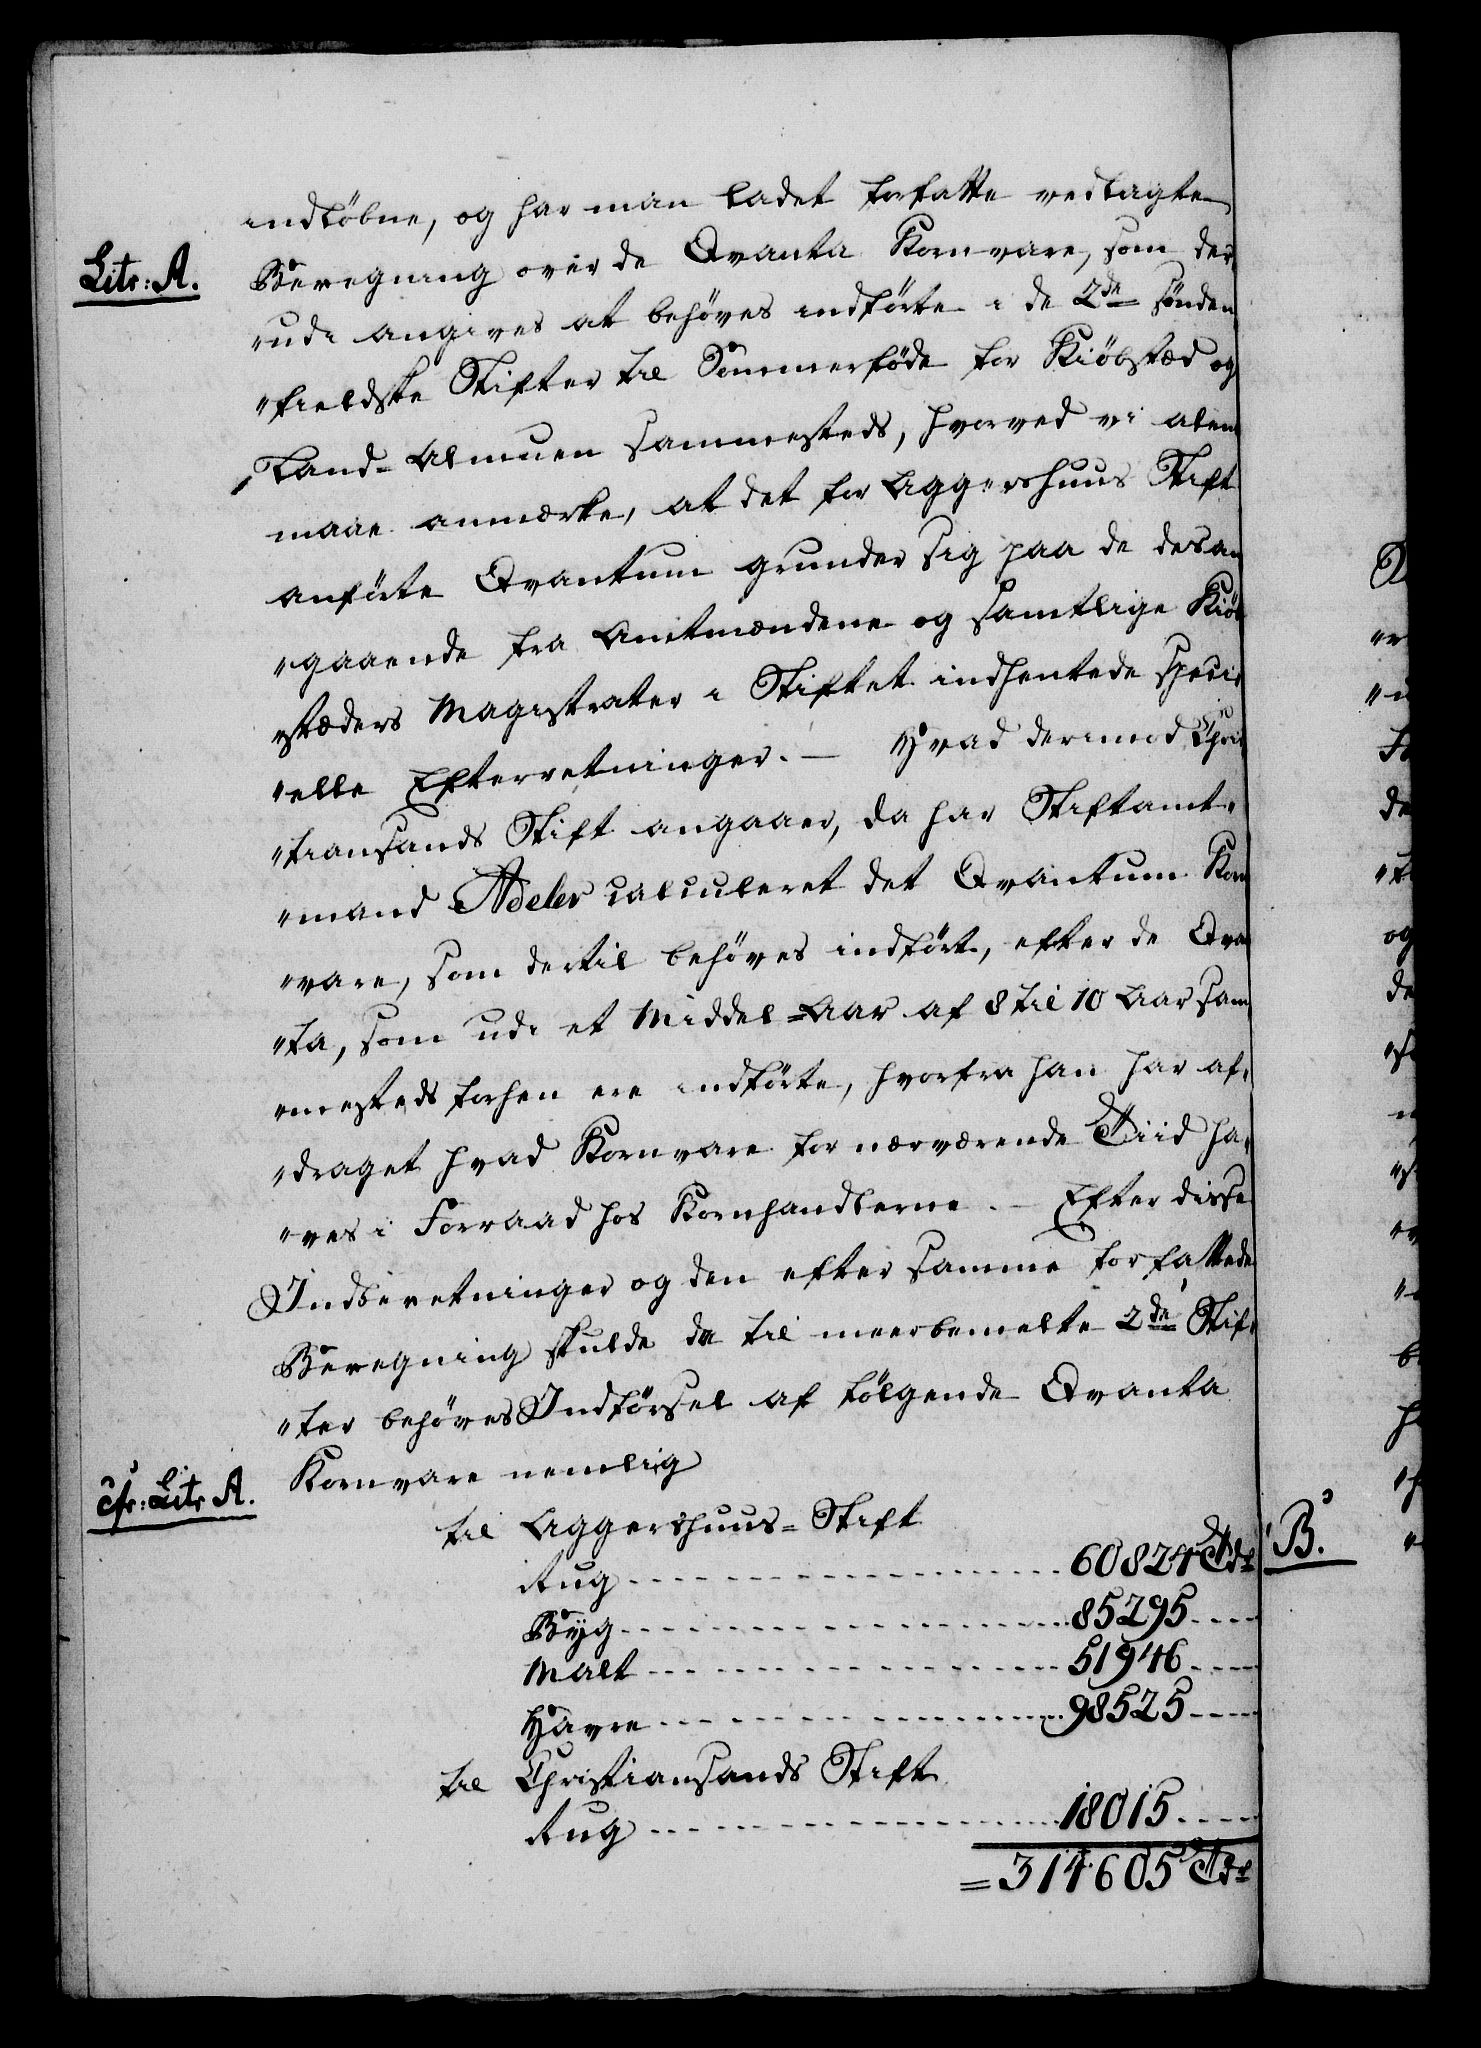 indløbne, og har man ladet forfatte vedlagte
Litr: A.
Beregning over de Qvanta Kornvare, som der„
„udi angives at behøves indførte i de 2de sønden
„fieldske Stifter til Sommerføde for Kiøbstæd og
Land-Almuen sammesteds, hvorved vi alene
maae anmærke, at det for Aggershuus Stift
anførte Qvantum grunder sig paa de desan
„gaaende fra Amtmændene og samtlige Kiøb
„stæders Magistrater i Stiftet indhentede speci„
„elle Efterretninger. — Hvad derimod Chri„
„stiansands Stift angaaer, da har Stiftamt„
„mand Adeler calculeret det Qvantum Korn
„vare, som dertil behøves indført, efter de Qvan
„ta, som udi et Middel-Aar af 8 til 10 Aar sam„
„mesteds forhen ere indførte, hvorfra han har af„
„draget hvad Kornvare for nærværende Tiid ha„
„ves i Forraad hos Kornhandlerne. — Efter disse
Indberetninger og den efter samme forfattede
Beregning skulde da til meerbemelte 2de Stif„
„ter behøves Indførsel af følgende Qvanta
Kornvare nemlig
cfr: Litr A.
til Aggershuus-Stift
Rug 60824 Tdr
Byg 85295
Malt 51946
Havre 98525
til Christiansands Stift
Rug 18015
= 314605 Tdr
B.